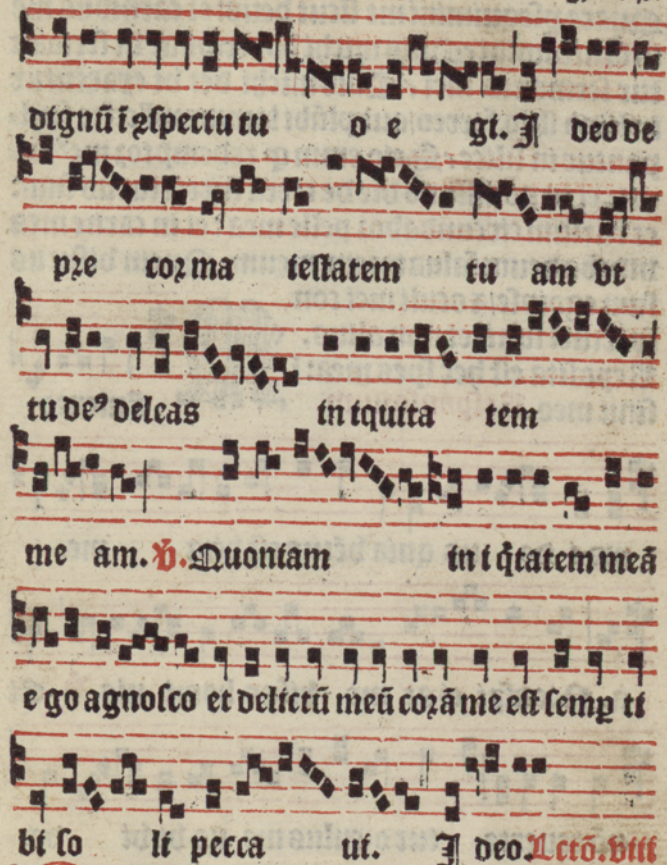 dignū i ꝯspectu tu o e gi. I deo de
pre cor ma iestatem tu am vt
tu deꝰ deleas in iquita tem
me am. V̄. Quoniam in i q̄tatem meā
e go agnosco et delictū meū corā me est semꝑ ti
bi so li pecca ui. I deo. Lctō. viii